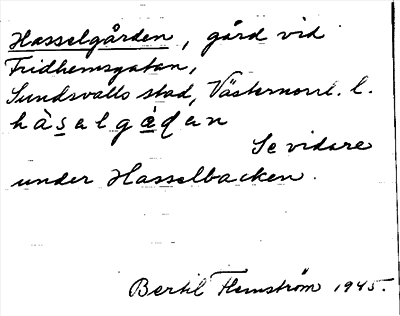 Hasselgården, gård vid
Fridhemsgatan,
Sundsvalls stad, Västernorrl. l.
hàsalgạ̊ɖan
Se vidare
under Hasselbacken.
Bertil Flemström 1945.